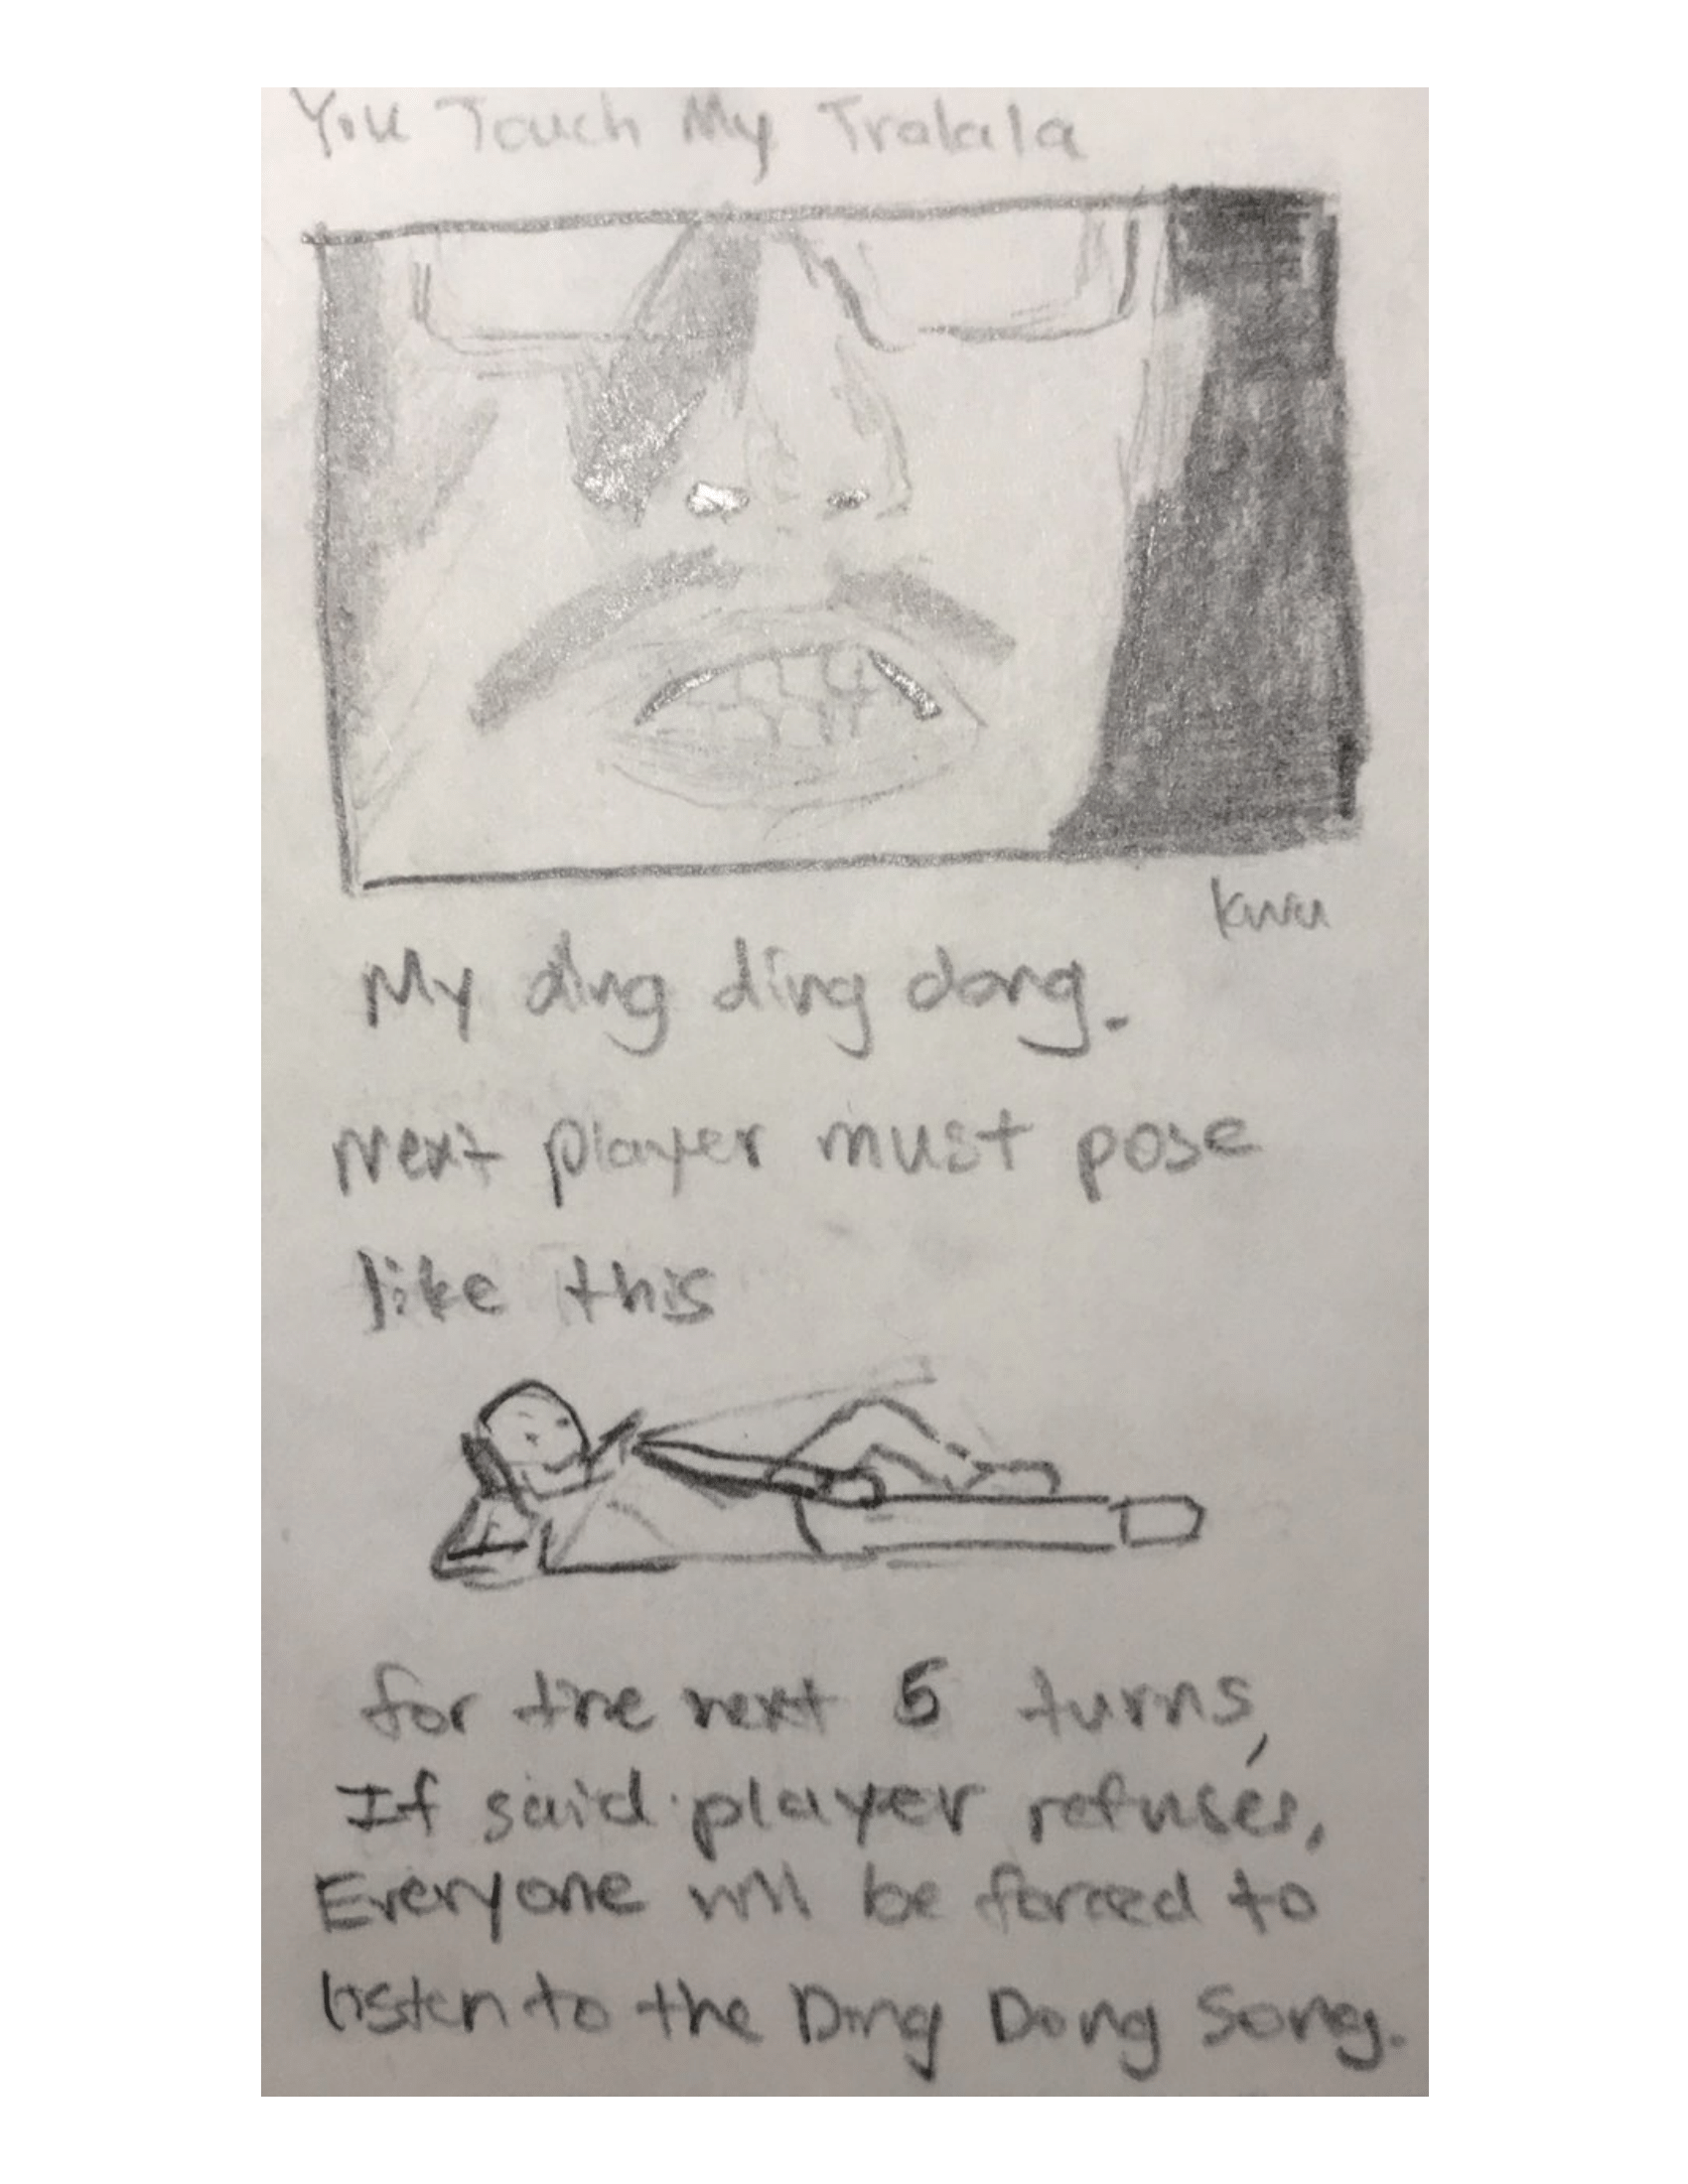 You Touch My Tralala
kwu
My ding ding dong.
Next player must pose
like this
for the next 5 turns,
If said player refuses,
Everyone will be forced to
listen to the Ding Dong Song.